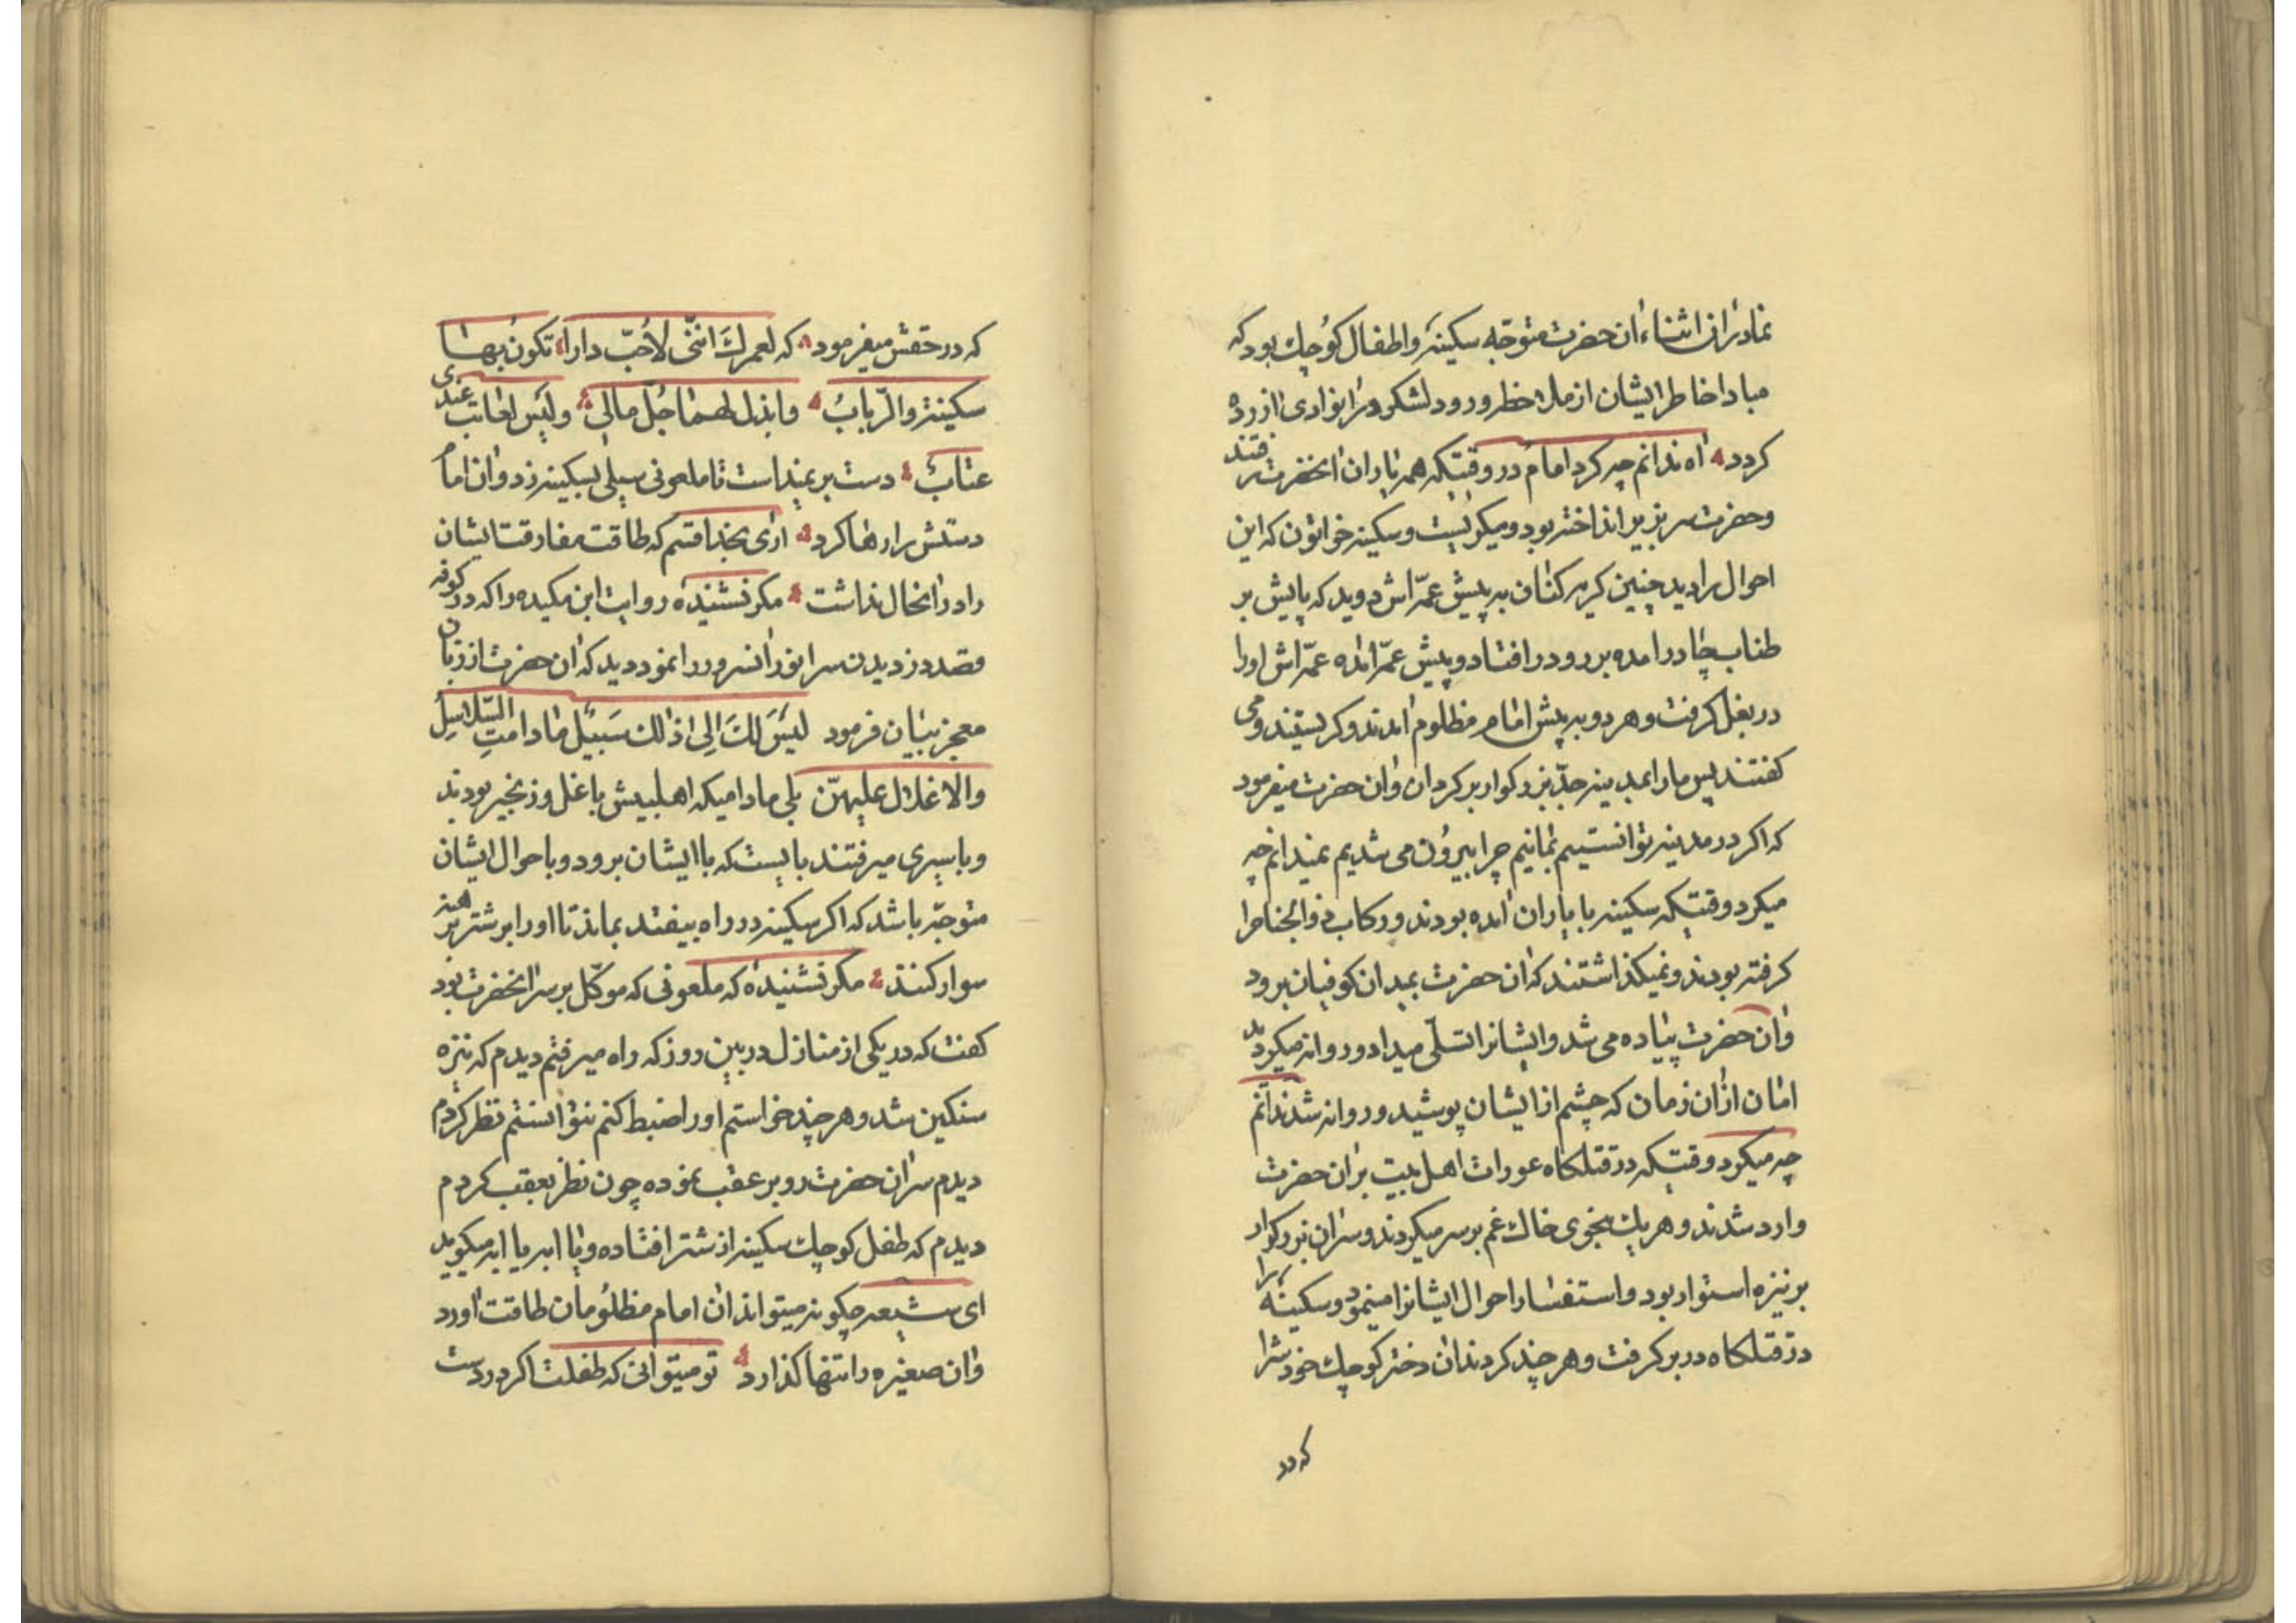 نمادران اثناء ان حضرت متوجّه سکینه و اطفال کوچك بود که
مبادا خاطر ایشان از ملاحظر ورود لشکر در انوادی ازرده
کردد اه ندانم چه کرد امام در وقتیکه همه یاران انحضرت رفتند
و حضرت سر بزیر انداخته بود و میکریست و سکینه خواتون که این
احوال را دید چنین کریه کنان به پیش عمّه اش دوید که پایش بر
طناب چادر امده بر رو در افتاد و پیش عمّه امده عمّه اش اورا
در بغل کرفت و هر دو به پیش امام مظلوم امدند و کریستند و می
کفتند پس مارا بمدینه جدّ بزرکوار برکردان و ان حضرت میفرمود
که اکر در مدینه توانستیم بمانیم چرا بیرون می شدیم نمیدانم چه
میکرد وقتیکه سکینه با یاران امده بودند و رکاب ذوالجناح را
کرفته بودند و نمیکذاشتند که ان حضرت بمیدان کوفیان برود
و ان حضرت پیاده می شد و ایشانرا تسلّی میداد و روانه میکردید
امان ازان زمان که چشم از ایشان پوشید و روانه شد ندانم
چه میکرد وقتیکه در قتلکاه عورات اهل بیت بران حضرت
وارد شدند و هریك بنحوی خاك غم بر سر میکردند و سران بزرکوار
بر نیزه استوار بود و استفسار احوال ایشانرا مینمود و سکینه را
در قتلکاه در بر کرفت و هر چند کردند ان دختر کوچك خود شرا
که در
که در حقش میفرمود که لعمرك انّنی لأحبّ دارا تکون بها
سکینة والرّبابُ وابذل لهما جُلّ مالی ولیس لعاتب عندی
عتابُ دست بر نمیداست تا ملعونی سیلی بسکینه زد و ان امام
دستش را رها کرد اری بخدا قسم که طاقت مفارقت ایشان
را در انحال نداشت مکر نشنیده روایت ابن مکیده را که در کوفه
قصد دزدیدن سر انور انسرور را نمود دید که ان حضرت از زبان
معجز بیان فرمود لیسَ لكَ الی ذالك سَبیل مادامتِ السّلاسِلُ
والاغلال علیهنّ بلی مادامیکه اهلبیتش با غل و زنجیر بودند
و با سیری میرفتند بایست که با ایشان برود و با حوال ایشان
متوجّه باشد که اکر سکینه در راه بیفتد بماند تا اورا بر شتر برهنه
سوار کنند مکر نشنیده که ملعونی که موکّل بر سر انحضرت بود
کفت که در یکی از منازل در بین روز که راه میرفتم دیدم که نیزه
سنکین شد و هر چند خواستم اورا ضبط کنم نتوانستم نظر کردم
دیدم سر ان حضرت رو بر عقب نموده چون نظر بعقب کردم
دیدم که طفل کوچك سکینه از شتر افتاده و یا ابه یا ابه میکوید
ای شیعه چکونه میتواند ان امام مظلومان طاقت اورد
و ان صغیره را تنها کذارد تو میتوانی که طفلت اکر در دست